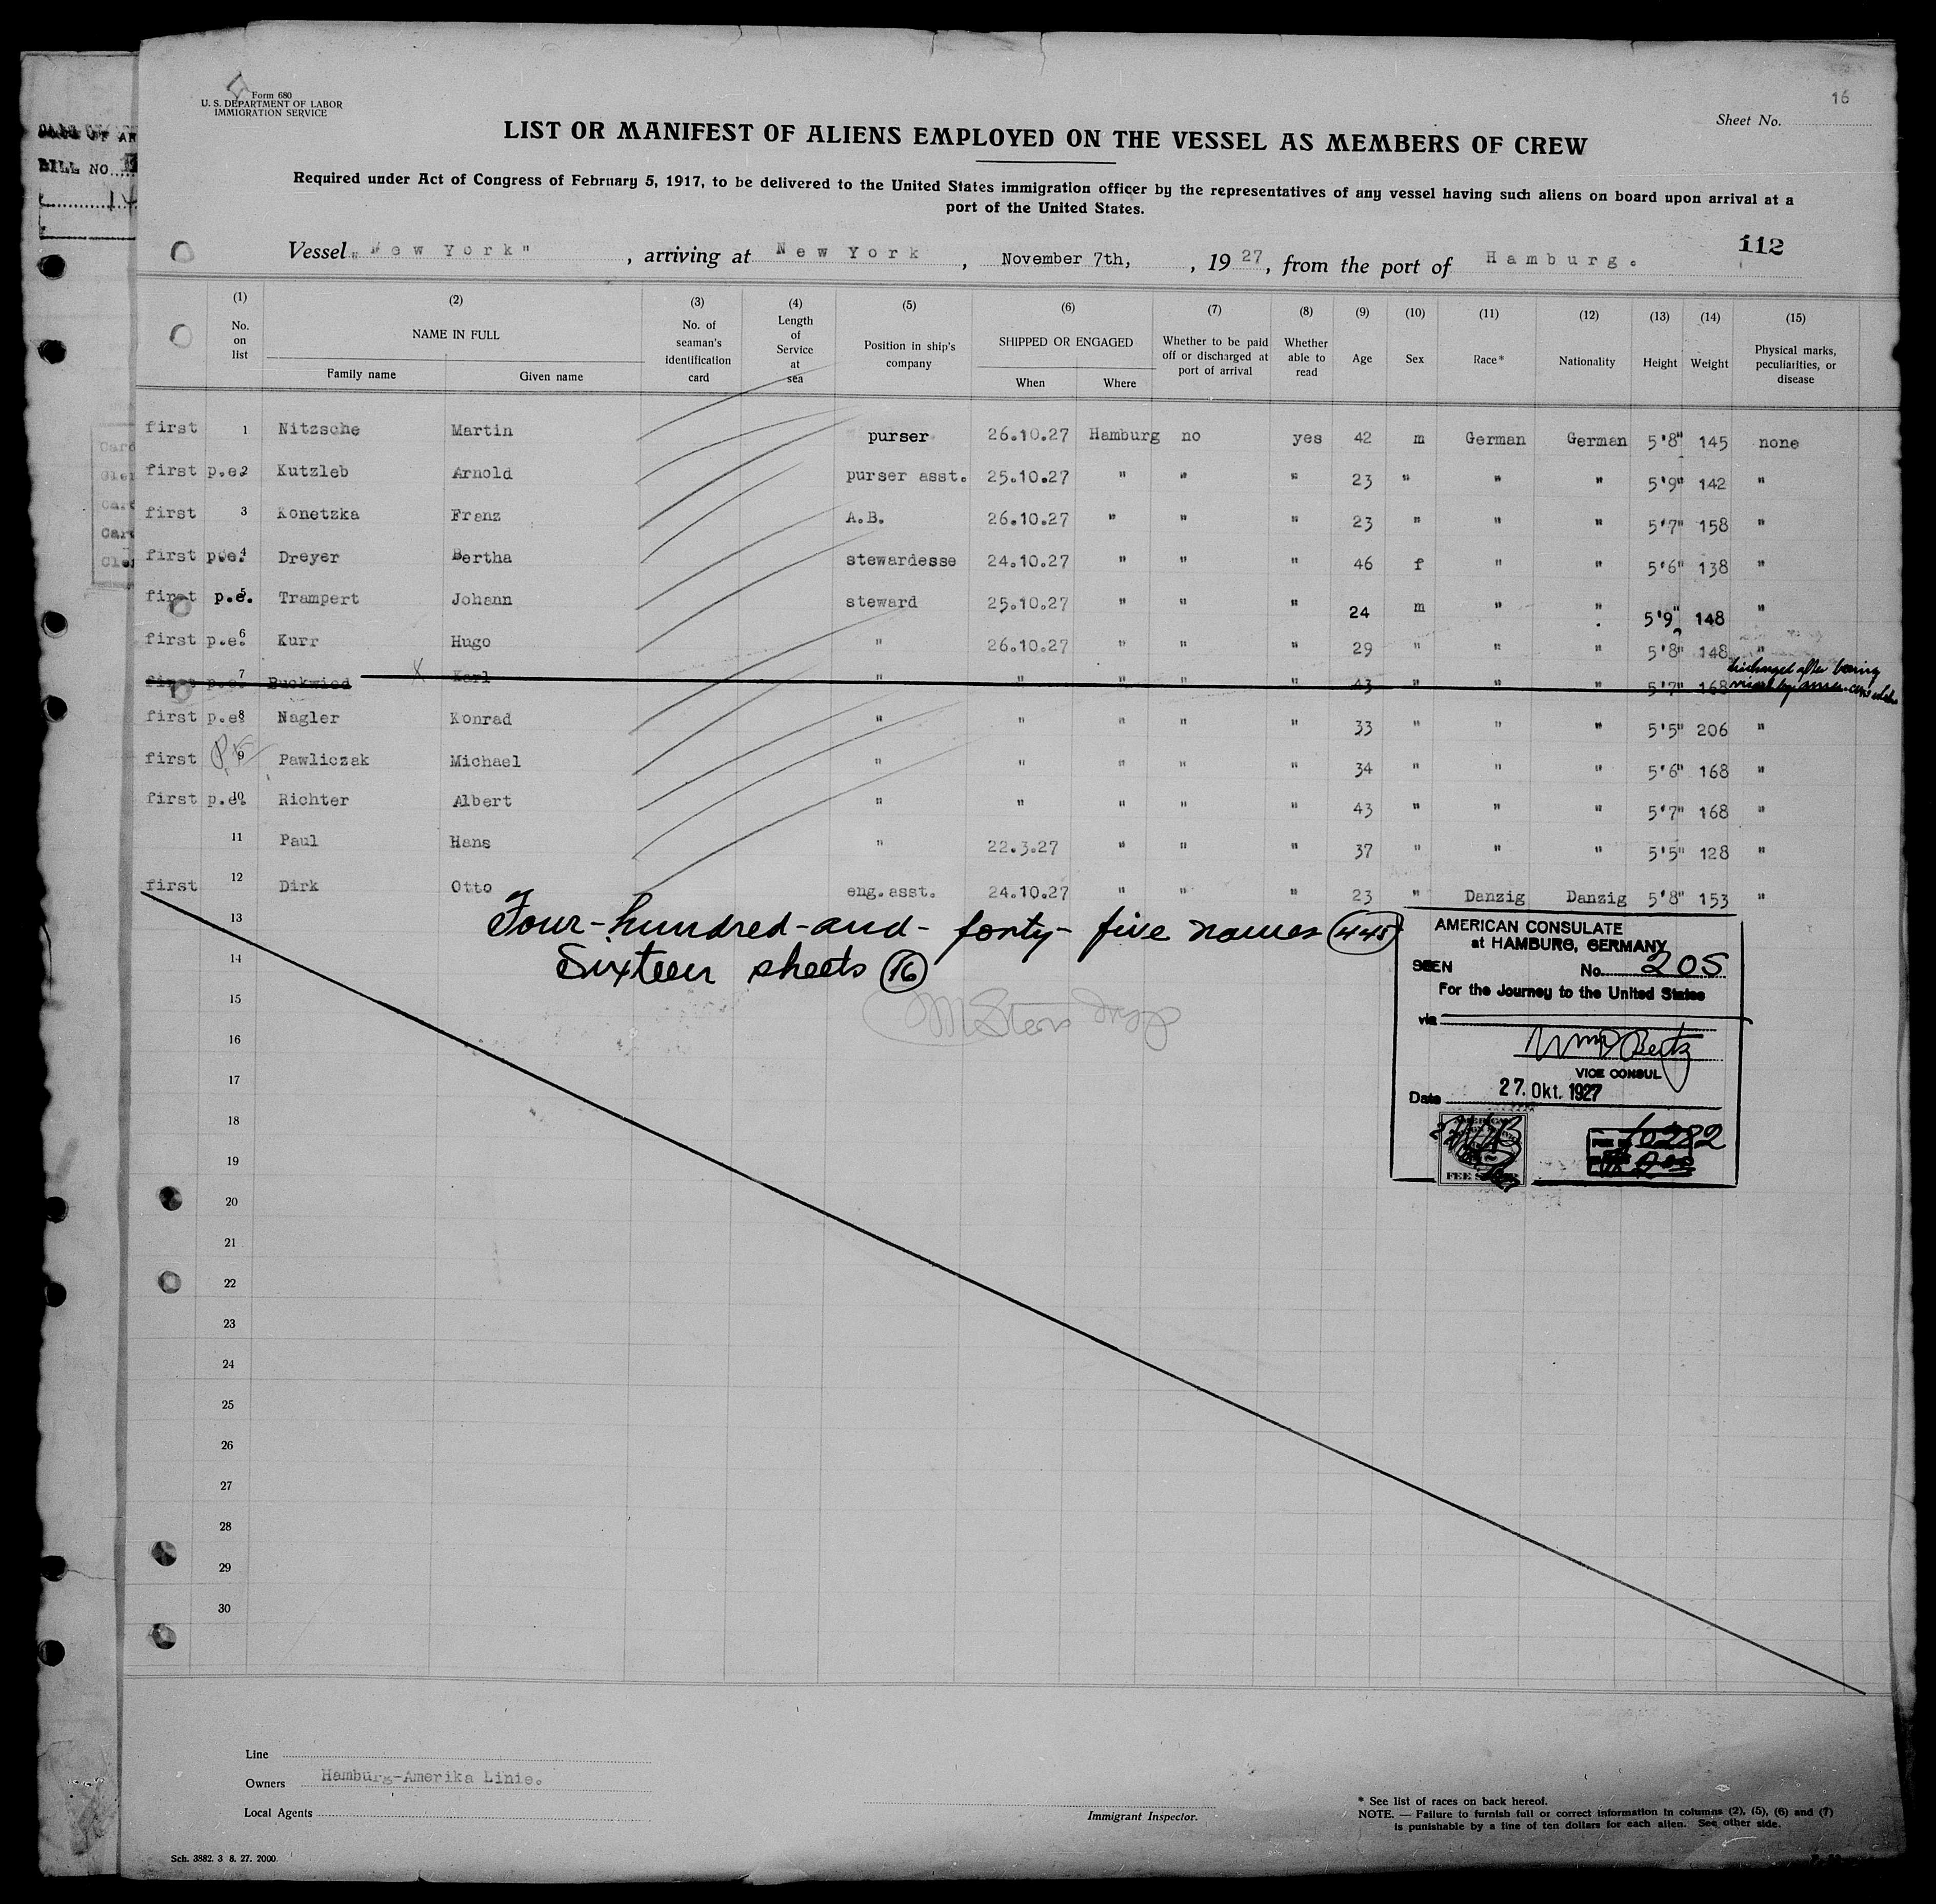 16
Form 680
U. S. DEPARTMENT OF LABOR
IMMIGRATION SERVICE
Sheet No.
LIST OR MANIFEST OF ALIENS EMPLOYED ON THE VESSEL AS MEMBERS OF CREW
Required under Act of Congress of February 5, 1917, to be delivered to the United States immigration officer by the representatives of any vessel having such aliens on board upon arrival at a
port of the United States.
BILL NO.
112
Vessel "New York", arriving at New York, November 7th, , 1927, from the port of Hamburg.
(1) (2) (3) (4) (5) (6) (7) (8) (9) (10) (11) (12) (13) (14) (15)
No. on list
NAME IN FULL
Family name Given name
No. of seaman's identification card
Length of Service at sea
Position in ship's company
SHIPPED OR ENGAGED
When Where
Whether to be paid off or discharged at port of arrival
Whether able to read
Age
Sex
Race*
Nationality
Height
Weight
Physical marks, peculiarities, or disease
first 1 Nitzsche Martin purser 26.10.27 Hamburg no yes 42 m German German 5'8" 145 none
first p.e. 2 Kutzleb Arnold purser asst. 25.10.27 " " " 23 " " " 5'9" 142 "
first 3 Konetzka Franz A.B. 26.10.27 " " " 23 " " " 5'7" 158 "
first p.e. 4 Dreyer Bertha stewardesse 24.10.27 " " " 46 f " " 5'6" 138 "
first p.e. 5 Trampert Johann steward 25.10.27 " " " 24 m " " 5'9" 148 "
first p.e. 6 Kurr Hugo " 26.10.27 " " " 29 " " " 5'8" 148 "
first p.e. 7 Buckwied Karl " " " " " 43 " " " 5'7" 168 discharged after being
first p.e. 8 Nagler Konrad " " " " " 33 " " " 5'5" 206 "
first 9 Pawliczak Michael " " " " " 34 " " " 5'6" 168 "
first p.e. 10 Richter Albert " " " " " 43 " " " 5'7" 168 "
11 Paul Hans " 22.3.27 " " " 37 " " " 5'5" 128 "
first 12 Dirk Otto eng.asst. 24.10.27 " " " 23 " Danzig Danzig 5'8" 153 "
Four-hundred-and-forty-five names (445)
Sixteen sheets (16)
13
14
15
16
17
18
19
20
21
22
23
24
25
26
27
28
29
30
AMERICAN CONSULATE
at HAMBURG, GERMANY
SEEN No. 205
For the Journey to the United States
via
VICE CONSUL
Date 27. Okt. 1927
Line
Owners Hamburg-Amerika Linie.
Local Agents
Immigrant Inspector.
* See list of races on back hereof.
NOTE. — Failure to furnish full or correct information in columns (2), (5), (6) and (7)
is punishable by a fine of ten dollars for each alien. See other side.
Sch. 3882. 3 8. 27. 2000.